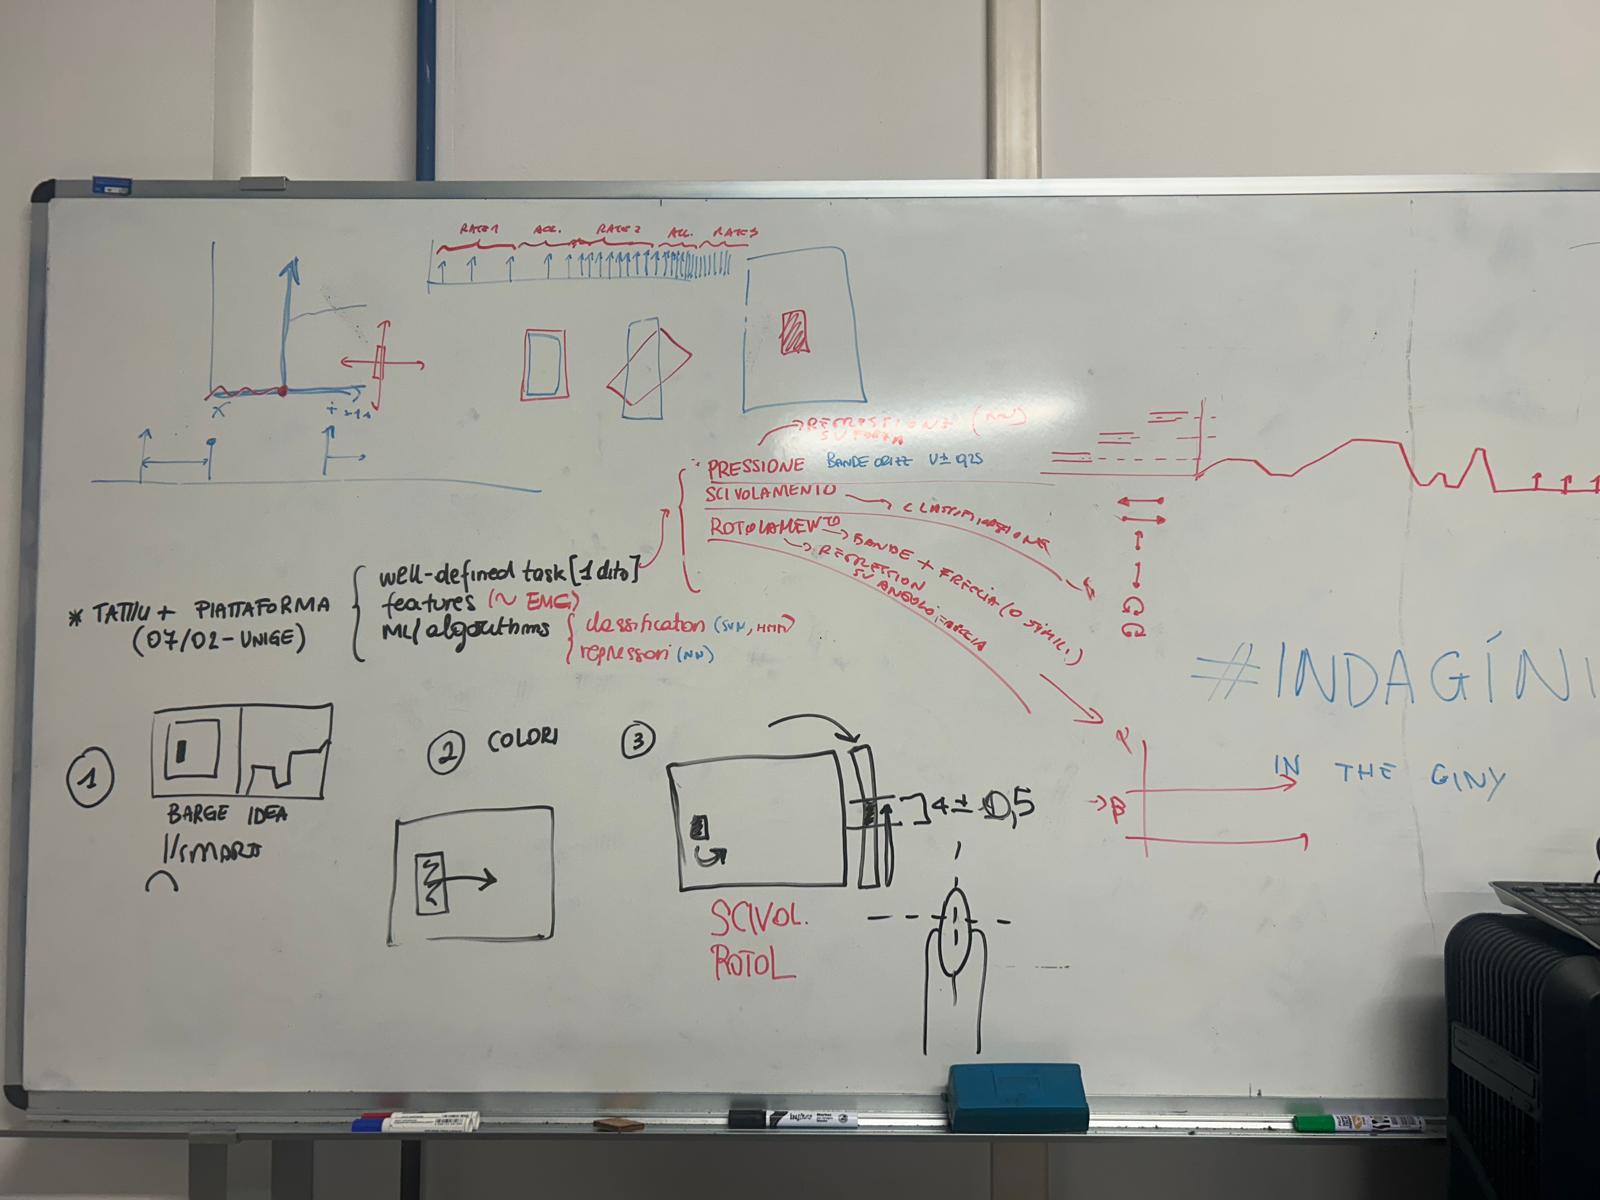 RATE 1 ACC. RATE 2 ACC. RATE 3
x
REGRESSIONE (NN)
SU FORZA
PRESSIONE BANDE ORIZZ V± 0,25
SCIVOLAMENTO CLASSIFICAZIONE
ROTOLAMENTO BANDE + FRECCIA (O SIMILI)
REGRESSION
SU ANGOLI, FRECCIA
* TATTILI + PIATTAFORMA
(07/02-UNIGE)
well-defined task [1 dito]
features (~ EMG)
ML/algorithms
classification (SVM, HMM)
regressori (NN)
#INDAGÍNI
IN THE GINY
1
BARGE IDEA
2 COLORI
3
4 ± 0,5
SCIVOL.
ROTOL
α
β